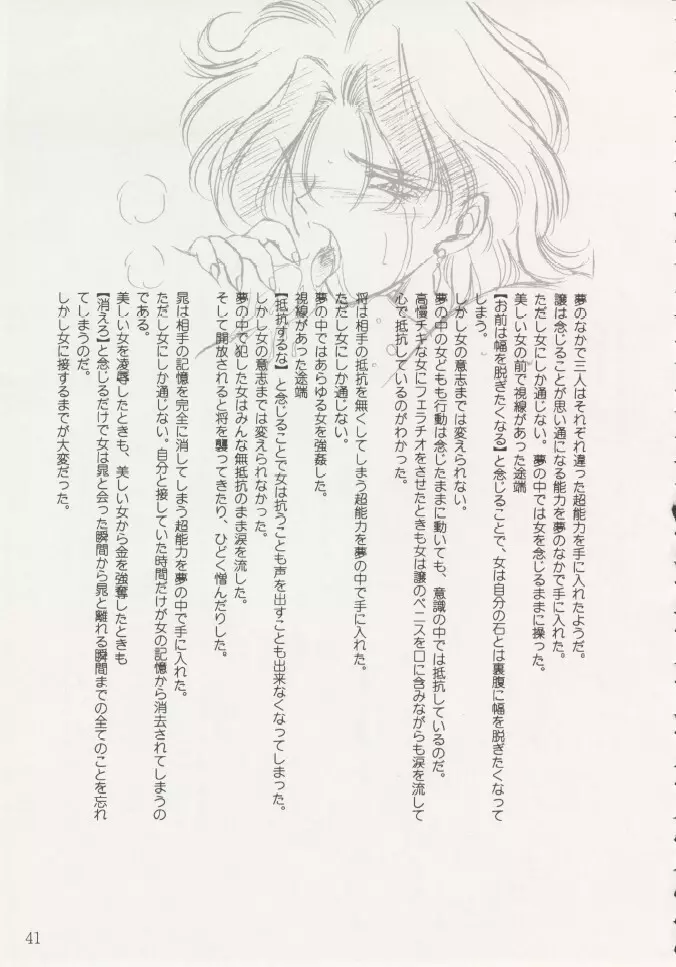 夢のなかで三人はそれぞれ違った超能力を手に入れたようだ。
譲は念じることが思い通になる能力を夢のなかで手に入れた。
ただし女にしか通じない。夢の中では女を念じるままに操った。
美しい女の前で視線があった途端
【お前は幅を脱ぎたくなる】と念じることで、女は自分の石とは裏腹に幅を脱ぎたくなって
しまう。
しかし女の意志までは変えられない。
夢の中の女どもも行動は念じたままに動いても、意識の中では抵抗しているのだ。
高慢チキな女にフェラチオをさせたときも女は譲のペニスを口に含みながらも涙を流して
心で抵抗しているのがわかった。
将は相手の抵抗を無くしてしまう超能力を夢の中で手に入れた。
ただし女にしか通じない。
夢の中ではあらゆる女を強姦した。
視線があった途端
【抵抗するな】と念じることで女は抗うことも声を出すことも出来なくなってしまった。
しかし女の意志までは変えられなかった。
夢の中で犯した女はみんな無抵抗のまま涙を流した。
そして開放されると将を襲ってきたり、ひどく憎んだりした。
晃は相手の記憶を完全に消してしまう超能力を夢の中で手に入れた。
ただし女にしか通じない。自分と接していた時間だけが女の記憶から消去されてしまうの
である。
美しい女を凌辱したときも、美しい女から金を強奪したときも
【消えろ】と念じるだけで女は晃と会った瞬間から晃と離れる瞬間までの全てのことを忘れ
てしまうのだ。
しかし女に接するまでが大変だった。
41